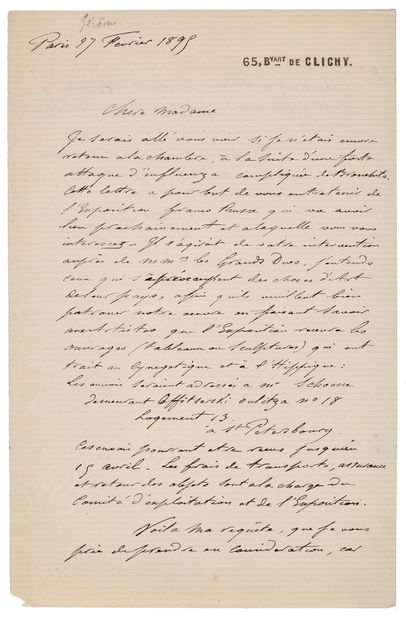 Gérôme
Paris 27 Février 1895
65, Bvart DE CLICHY.
Chère Madame
Je serais allé vous voir si je n'étais encore
retenu à la chambre, à la suite d'une forte
attaque d'influenza compliquée de Bronchite.
Cette lettre a pour but de vous entretenir de
l'Exposition franco Russe qui va avoir
lieu prochainement et à laquelle vous vous
interessez - Il s'agirait de votre intervention
auprès de M.M. les Grands Ducs, j'entends
ceux qui s'préoccupent des choses d'Art
de leur pays, afin qu'ils veuillent bien
patroner notre œuvre en faisant savoir
aux Artistes que l'Exposition recevra les
ouvrages (tableaux ou sculptures) qui ont
trait au Cynegetique et à l'Hippique:
Les envois seraient adressés à Mr
demeurant Offitserski oulitza no 18
Logement 13.
à St Petersbourg
Ces envois pourront etre reçus jusqu'au
15 avril. Les frais de transports, assurance
et retour des objets sont à la charge du
Comité d'exploitation et de l'Exposition.
Voilà ma requête, que je vous
prie de prendre en considération, car